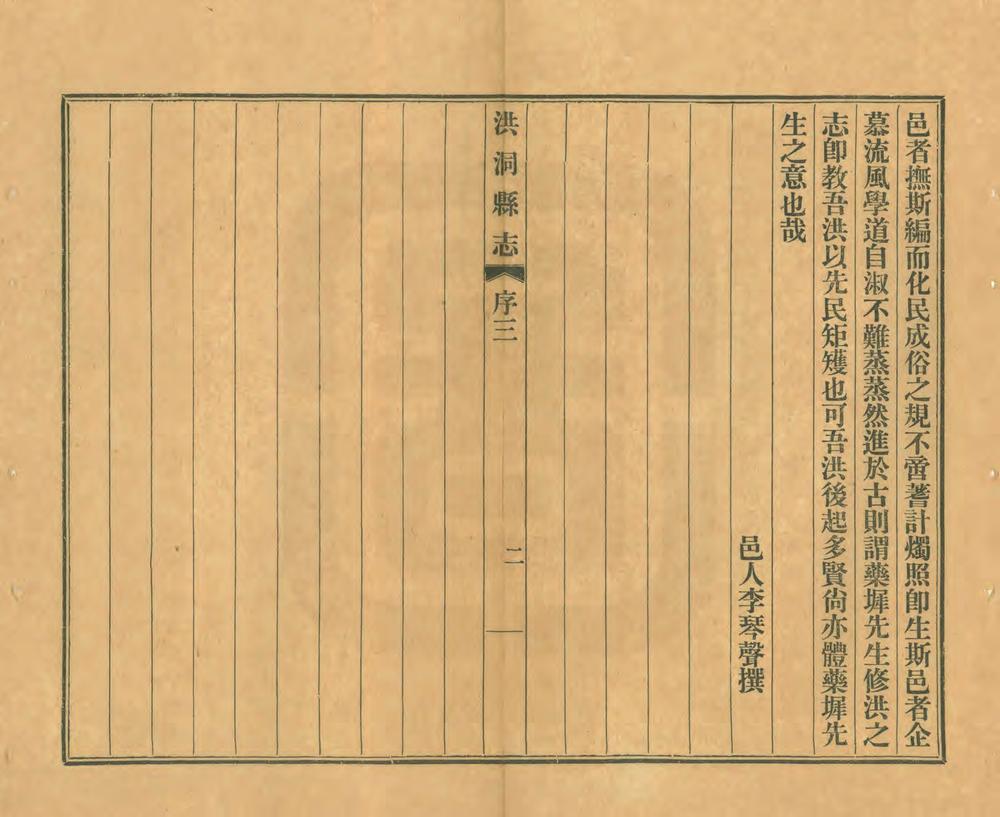 邑者撫斯編而化民成俗之規不啻蓍計燭照卽生斯邑者企
慕流風學道自淑不難蒸蒸然進於古則謂藥墀先生修洪之
志卽教吾洪以先民矩矱也可吾洪後起多賢尙亦體藥墀先
生之意也哉
邑人李琴聲撰
洪洞縣志 序三 二